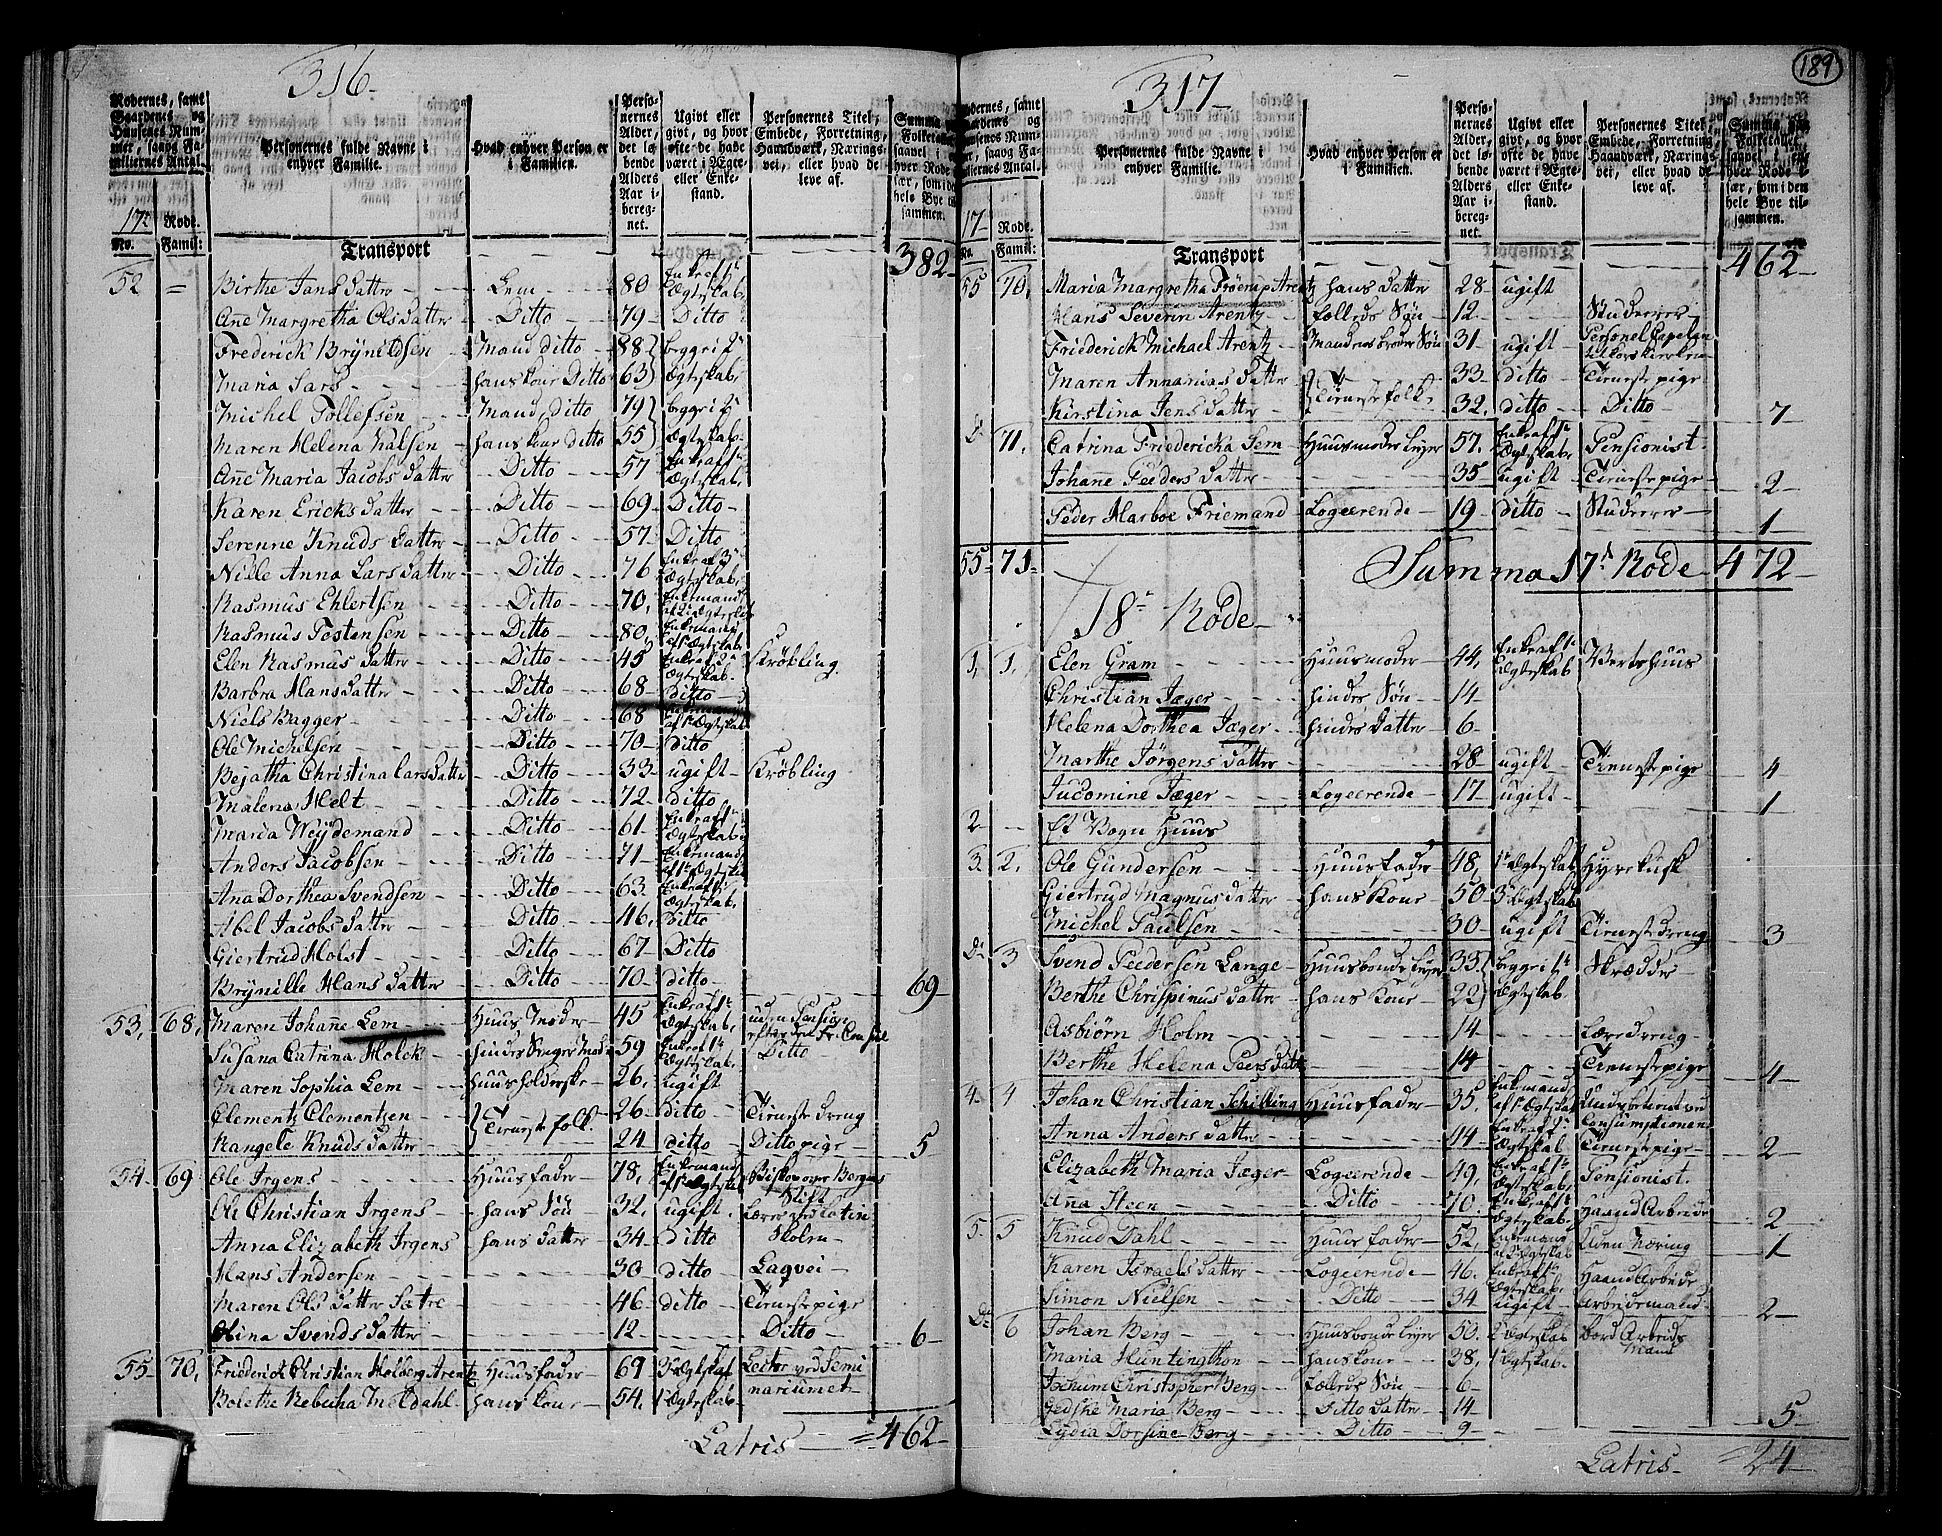 316
Rodernes, samt Gaardenes og Husenes Num- mer, saavg Fa- miliernes Antal.
Personernes fulde Navne i enhver Familie.
Hvad enhver Person er i Familien.
Perso- nernes Alder, det lø- bende Alders Aar i- bereg- net.
Ugivt eller givt, og hvor ofte de have været i Ægte- eller Enke- stand.
Personernes Titel, Embede, Forretning, Haandværk, Nærings- vei, eller hvad de leve af.
17 No. Rode. Famil:
Transport 382
52 = Birthe Jans datter Lem 80 Enke af 1te Ægteskab
Ane Margretha Olsdatter Ditto 79 Ditto
Frederick Brynildsen Mand ditto 88 begge i 2
Maria Lars hans kone Ditto 63 Ægteskab
Michel Tollefsen Mand, ditto 79 begge i 2
Maren Helena Nilsen hans kone ditto 55 Ægteskab
Ane Maria Jacobs datter Ditto 57 Enke af 1te Ægteskab
Karen Ericks datter Ditto 69 Ditto
Serenne Knuds datter Ditto 57 Ditto
Nille Anna Lars datter Ditto 76 Enke af 3 Ægteskab
Rasmus Ehlertsen Ditto 70 Enkemand af 2 Ægteskab
Rasmus Testensen Ditto 80 Enkemand af 1 Ægteskab
Elen Rasmus datter Ditto 45 Enke af 2 Ægteskab Krøbling
Barbra Hans datter Ditto 68 ditto
Niels Bagger Ditto 68 Enkemand af 1 Ægteskab
Ole Michelsen Ditto 70 ditto
Bejatha Christina Larsdatter Ditto 33 ugift Krøbling
Malena Helt Ditto 72 ditto
Maria Weydemand Ditto 61 Enke af 1 Ægteskab
Anders Jacobsen Ditto 71 Enkemand af 1 Ægteskab
Ana Dorthea Svendsen Ditto 63 Enke af 1 Ægteskab
Abel Jacobs datter Ditto 46 Ditto
Giertrud Holst Ditto 67 Ditto
Brynille Hans datter Ditto 70 ditto 69
53 68 Maren Johanne Lem Huus Moder 45 Enke af 1te Ægteskab uden Pension efter
Susana Catrina Holck hindes 59 Enke af 1te Ægteskab Ditto
Maren Sophia Lem huusholderske 26 ugift
Clementz Clementzen Tieneste folk 26 ditto Tieneste dreng
Rangele Knuds datter 24 ditto Ditto pige 5
54 69 Ole Irgens Huusfader 78 Enkemand af 1 Ægteskab Biskop over Bergens Stift
Ole Christian Irgens hans Søn 32 ugift Lærer ved latin Skolen
Anna Elizabeth Irgens hans datter 34 ditto
Hans Andersen 30 ditto Laqvei
Maren Ols datter Sætre 46 ditto Tieneste pige
Olina Svends datter 12 Ditto 6
55 70 Friederich Christian Holberg Arentz Huusfader 69 Ægteskab Lector ved Semi
Bolethe Rebecha Meldahl hans kone 54 1 Ægteskab nariumet
Latris 462
317
189
Rodernes, samt Gaardenes og Husenes Num- mer, saavg Fa- miliernes Antal.
Personernes fulde Navne i enhver Familie.
Hvad enhver Person er i Familien.
Perso- nernes Alder, det lø- bende Alders Aar i- bereg- net.
Ugivt eller givt, og hvor ofte de have været i Ægte- eller Enke- stand.
Personernes Titel, Embede, Forretning, Haandværk, Nærings- vei, eller hvad de leve af.
17 No. Rode. Famil:
Transport 462
55 70 Maria Margretha Frøerup Arentz hans datter 28 ugift
Hans Severin Arentz fælleds Søn 12 Studerer
Friederich Michael Arentz Mandens broder Søn 31 ugift Personel Capelan til Korskirken
Maren Annanias datter 33 ditto Tieneste pige
Kirstina Jens datter Tieneste folk 32 ditto Ditto 7
Do 71 Catrina Friedericka Lem Huusmoder Leyer 57 Enke af 1te Ægteskab Pensionist
Johanne Peeders datter 35 ugift Tieneste pige 2
Peder Harboe Friemand Logeerende 19 ditto Studerer 1
55 71 Summa 17de Rode 472
18de Rode
1 1 Elen Gram Huusmoder 44 Enke af 1te Ægteskab Vertshuus
Christian Jæger hindes Søn 14
Helena Dorthea Jæger hindes datter 6
Marthe Jørgens datter 28 ugift Tieneste pige 4
Judomine Jæger Logeerende 17 ugift 1
2 Et Vogn Huus
3 2 Ole Gundersen Huusfader 48 1te Ægteskab Hyrekusk
Giertrud Magnus datter hans Kone 50 3 Ægteskab
Michel Paulsen 30 ugift Tieneste dreng 3
Do 3 Svend Peedersen Lange Huusbonde Leyer 35 begge i 1te Skrædder
Berthe Chrispinus datter hans Kone 22 Ægteskab
Asbiørn Holm 14 Læredreng
Berthe Helena Peers datter 14 Tieneste pige 4
4 4 Johan Christian Schilling Huusfader 35 Enkemand af 1 Ægteskab Underbetient ved Consumptionen
Anna Anders datter 44 Enke af 1 Ægteskab Tieneste pige 2
Elizabeth Maria Jæger Logeerende 49 Enke af 1te Ægteskab Pensionist
Anna Steen Ditto 70 Enke af 1te Ægteskab Haand Arbeide 2
5 5 Knud Dahl Huusfader 52 Enkemand af 1 Ægteskab Uden Næring 1
Karen Israels datter Logeerende 46 Enke af 1te Ægteskab Haand Arbeide
Simon Nielsen Ditto 34 ugift Arbeidsmand 2
Do 6 Johan Berg Huusbonde Leyer 50 2 Ægteskab Bord Arbeids Mand
Maria Huntingthon hans kone 38 1 Ægteskab
Jochum Christopher Berg fælleds Søn 6
Gedske Maria Berg Ditto datter 14
Lydia Dorsine Berg Ditto 9 5
Latris 24